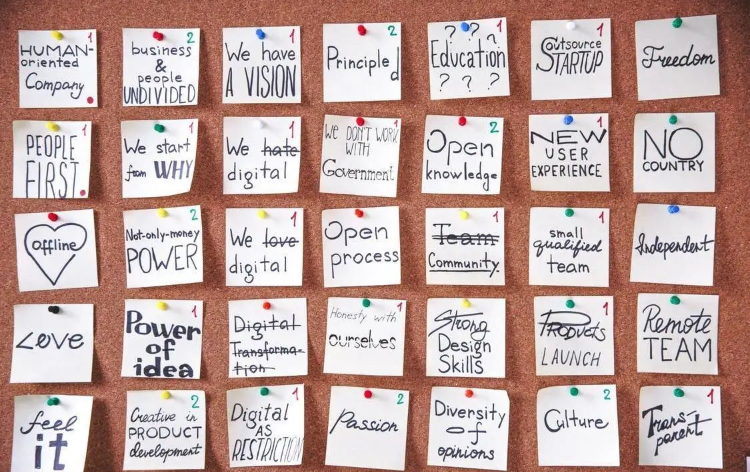 HUMAN- 1
oriented
Company
business 2
&
people
UNDIVIDED
We have 1
A VISION
Principled 2
? ? ? 1
Education
? ? ?
outsource 1
STARTUP
Freedom
PEOPLE 1
FIRST
We start 1
from WHY
We hate 1
digital
We DON'T WORK 1
WITH
Government
Open 2
knowledge
NEW 1
USER
EXPERIENCE
NO
COUNTRY
offline
Not-only-money 2
POWER
We love 1
digital
Open
process
Team 1
Community
small 1
qualified
team
Independent
Love
Power
of
idea
Digital
Transforma-
tion
Honesty with 1
ourselves
Strong
Design
Skills
PRODUCTS 1
LAUNCH
Remote
TEAM
feel
it
Creative in 2
PRODUCT
development
Digital 1
AS
RESTRICTION
Passion 2
Diversity
of
opinions
Culture 2
Trans- 1
parent